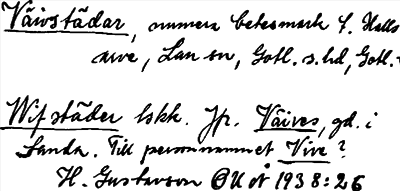 Väivstädar, numera betesmark t. Halls
arve, Lau sn, Gotl. s. hd, Gotl.
Wifstäder lskk. Jfr. Väives, gd. i
Sanda. Till personnamnet Vive?
H. Gustavson GUOÅ 1938:26